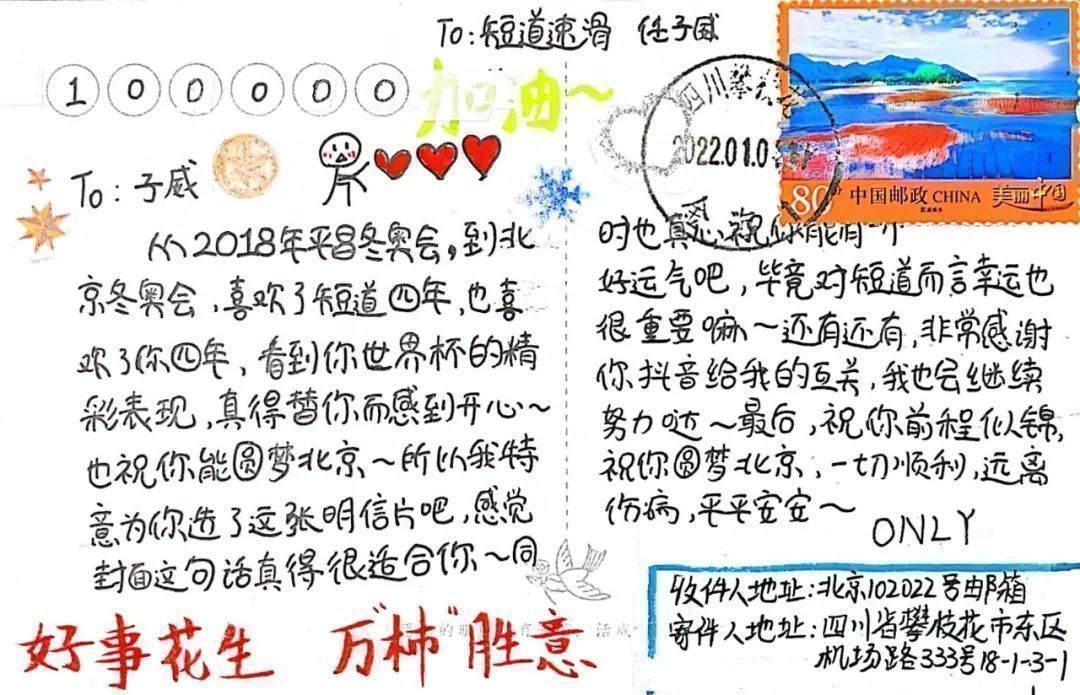 To:短道速滑 任子威
100000
加油~
四川攀枝花
2022.01.0
80分 中国邮政 CHINA 美丽中国
To:子威
从2018年平昌冬奥会,到北
京冬奥会,喜欢了短道四年,也喜
欢了你四年,看到你世界杯的精
彩表现,真得替你而感到开心~
也祝你能圆梦北京~所以我特
意为你选了这张明信片吧,感觉
封面这句话真得很适合你~同
时也真心祝你能有一个
好运气吧,毕竟对短道而言幸运也
很重要嘛~还有还有,非常感谢
你抖音给我的互关,我也会继续
努力哒~最后,祝你前程似锦,
祝你圆梦北京,一切顺利,远离
伤病,平平安安~
ONLY
收件人地址:北京102022号邮箱
寄件人地址:四川省攀枝花市东区
机场路333号18-1-3-1
好事花生 万"柿"胜意